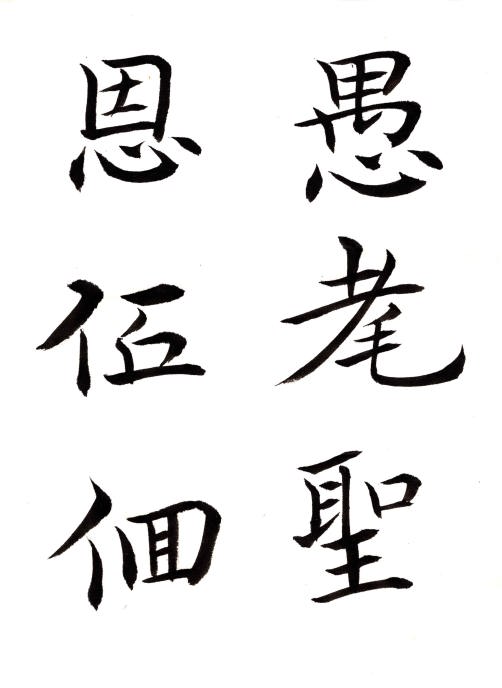 愚耄聖
恩伍